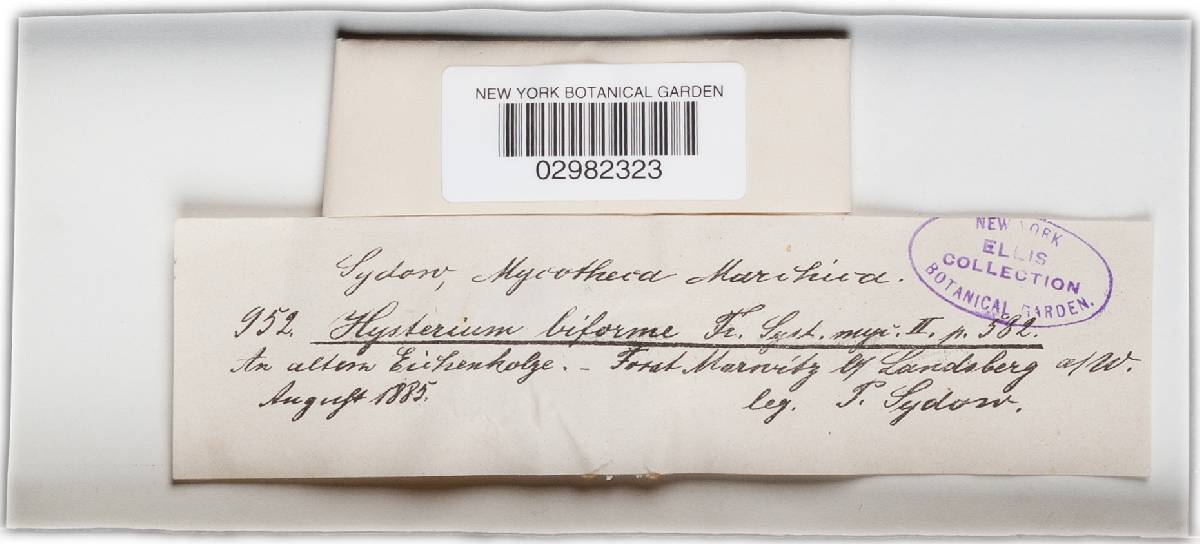 NEW YORK BOTANICAL GARDEN
02982323
NEW YORK
ELLIS
COLLECTION
BOTANICAL GARDEN.
Sydow, Mycotheca Marchica.
952. Hysterium biforme Fr. Syst. myc. II. p. 582.
An altem Eichenholze. – Forst Marwitz b/ Landsberg a/W.
August 1885.
leg. P. Sydow.